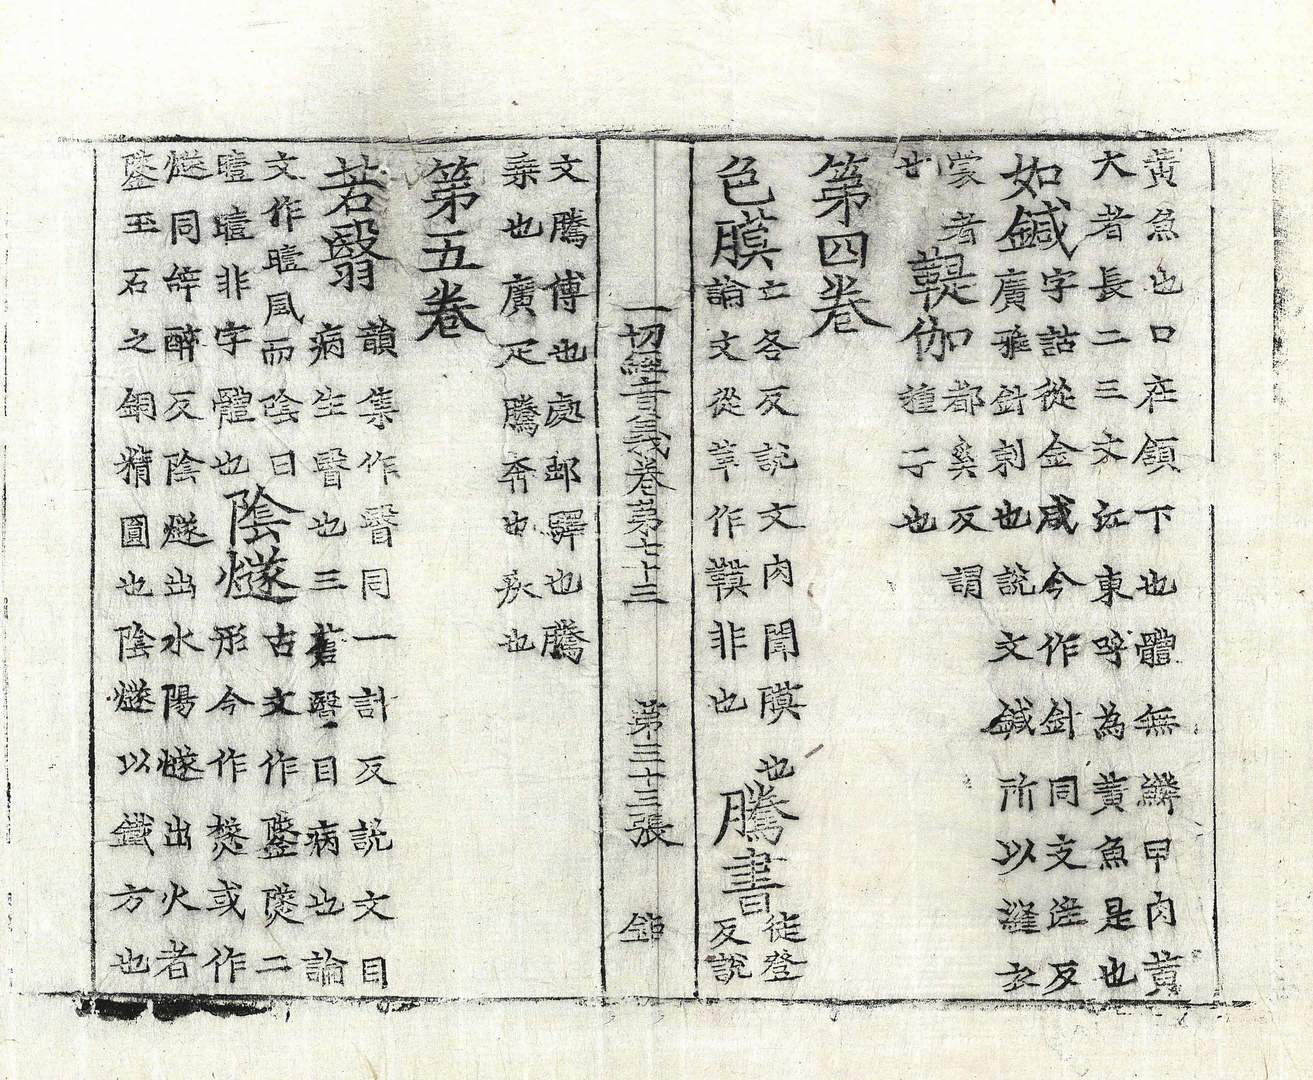 黃魚也口在頷下也體無鱗甲肉黃
大者長二三丈江東呼為黃魚是也
如鍼
字詁從金咸今作針同支淫反
廣雅針刺也說文鍼所以縫衣
鞮伽
蒙者都奚反謂
廿種子也
第四卷
色膜
亡各反說文肉閒膜也
論文從革作鞹非也
騰書
徒登
反說
一切經音義卷第七十三 第三十三張 鉅
文騰傳也處郵驛也騰
乘也廣疋騰奔也疾也
第五卷
若瞖
韻集作瞖同一計反說文目
病生瞖也三蒼瞖目病也論
文作曀風而陰曰
曀曀非字體也
陰燧
古文作䥙㷭二
形今作㸂或作
燧同辞醉反陰燧出水陽燧出火者
䥙玉石之銅精圓也陰燧以鐵方也